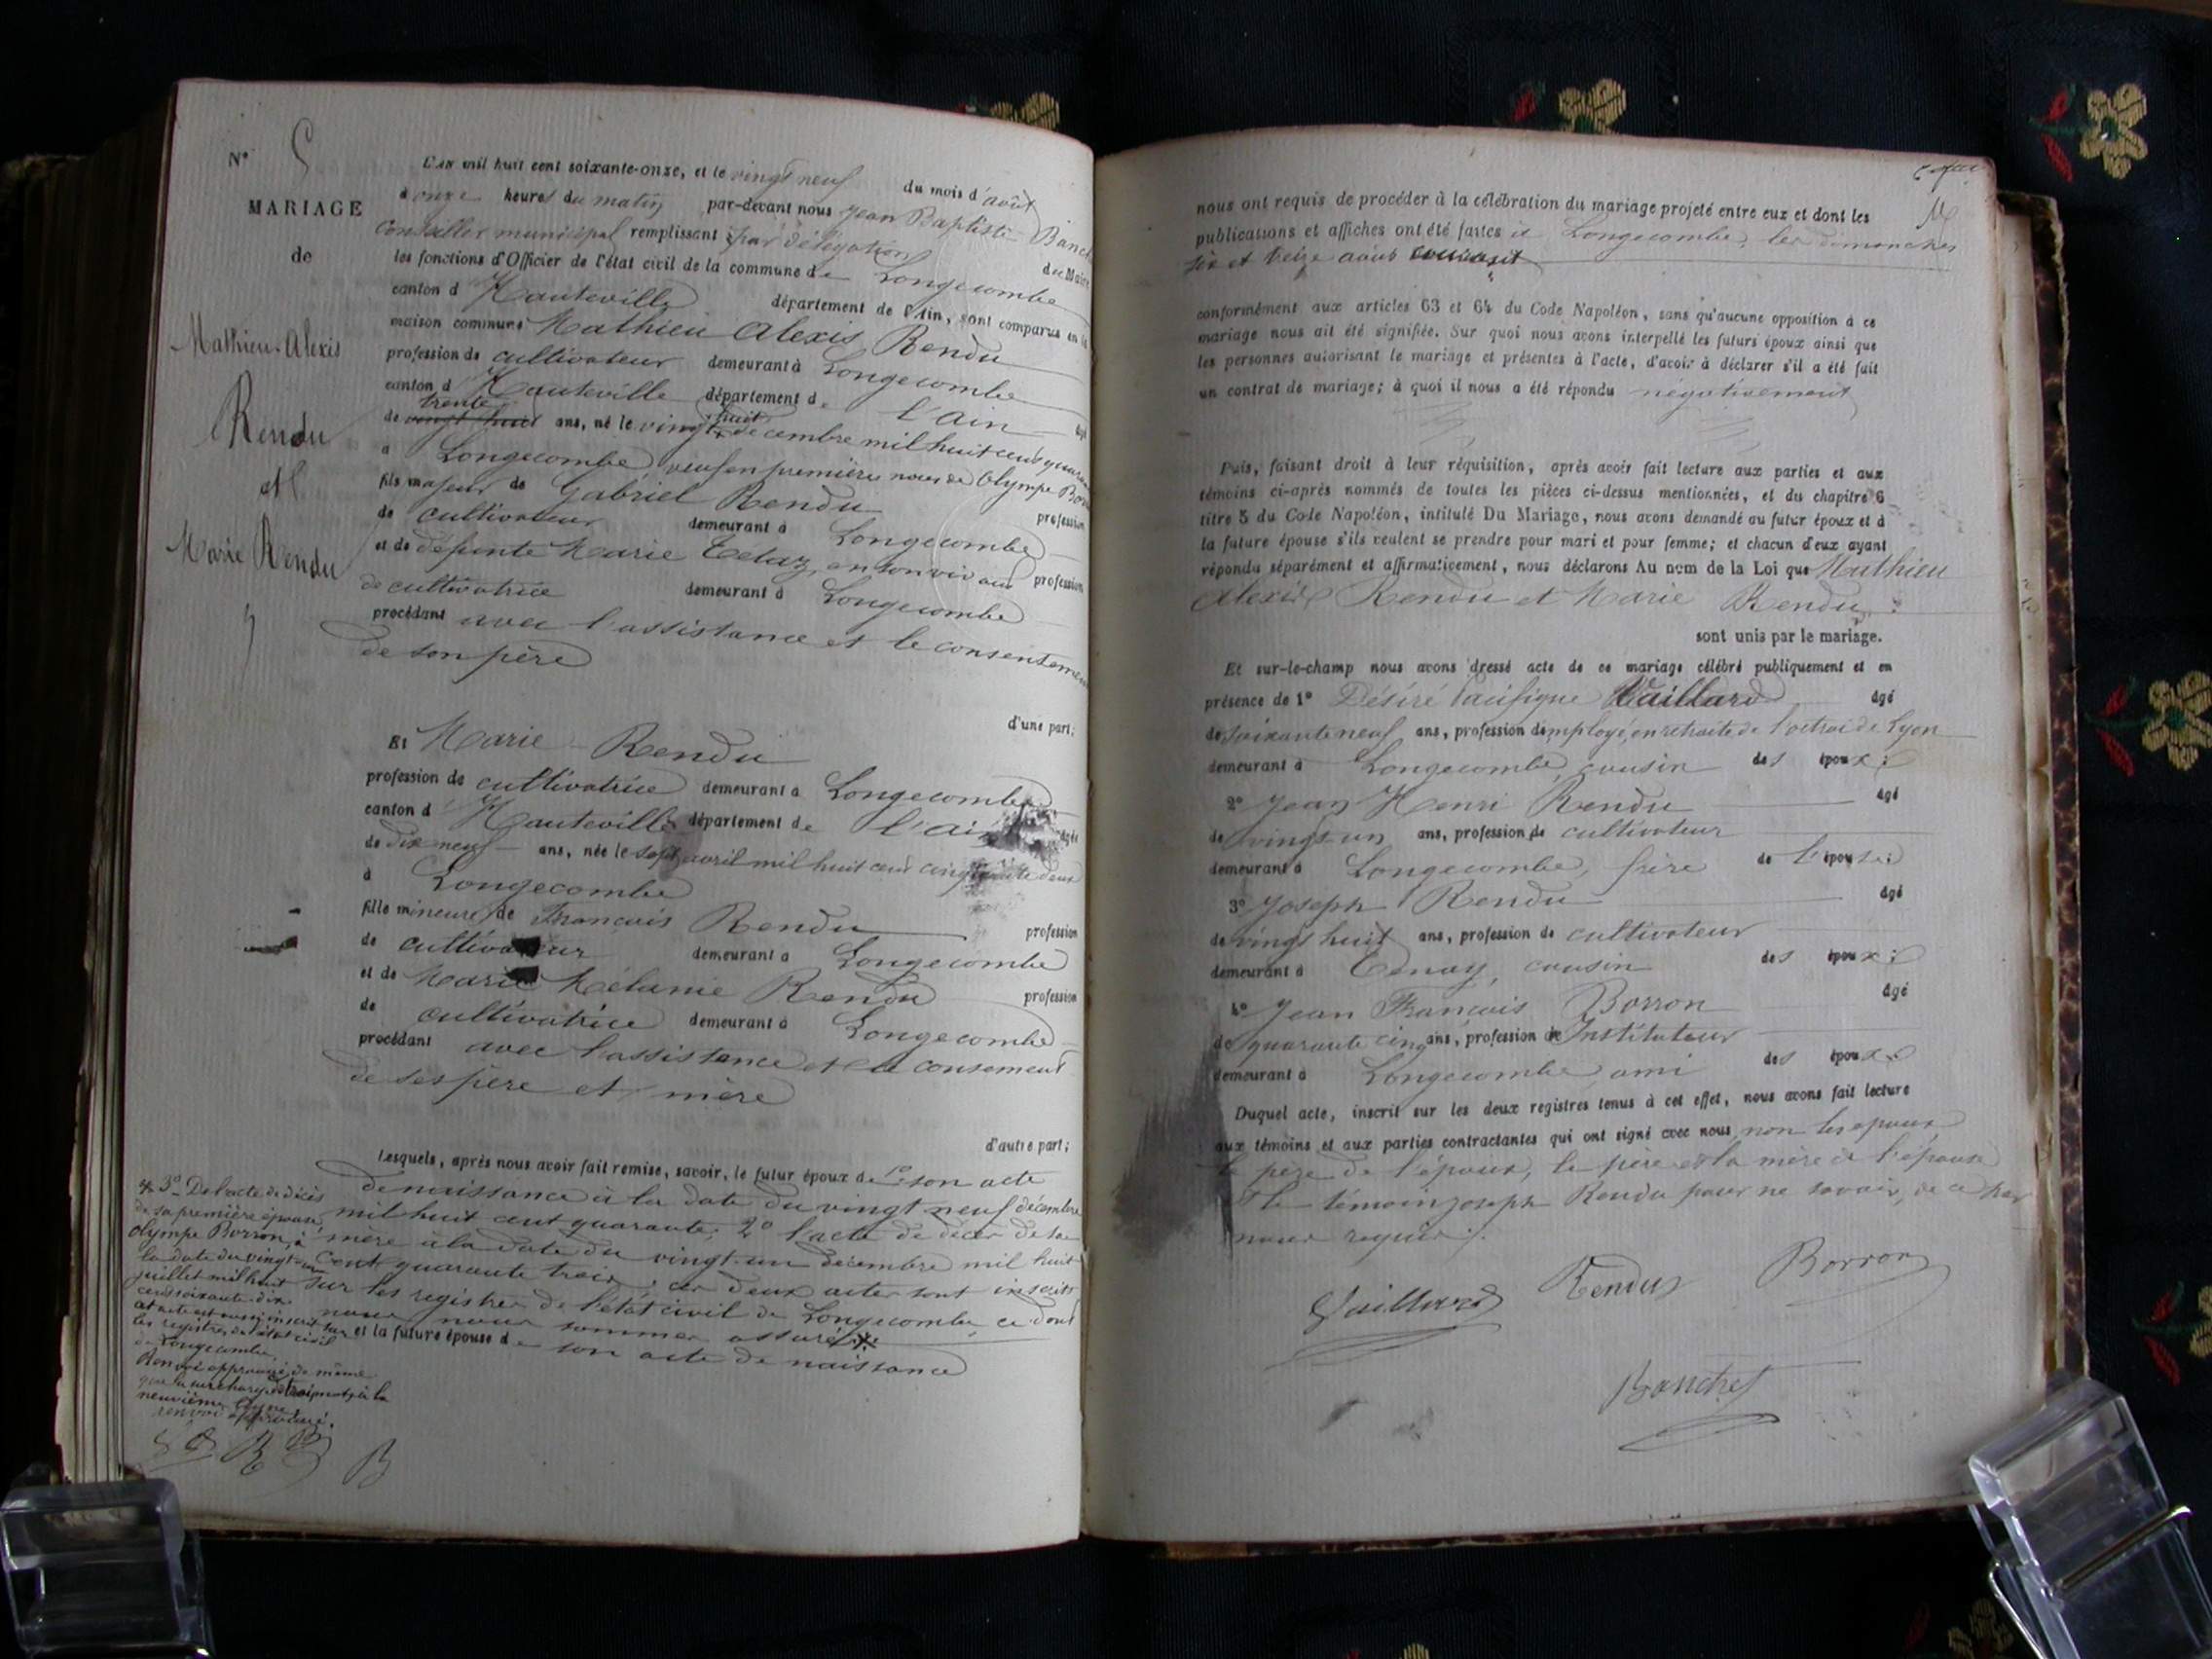 N° 5
MARIAGE
de
Mathieu Alexis
Rendu
et
Marie Rendu
L'AN mil huit cent soixante-onze, et le vingt neuf du mois d'août
à onze heures du matin par-devant nous Jean Baptiste
Conseiller municipal remplissant par délégation du Maire
les fonctions d'Officier de l'état civil de la commune de Longecombe
canton d'Hauteville département de l'Ain, sont comparus en la
maison commune Mathieu Alexis Rendu
profession de cultivateur demeurant à Longecombe
canton d'Hauteville département de l'Ain âgé
trente huit
de vingt huit ans, né le vingt décembre mil huit cent
à Longecombe veuf en première noces de Olympe
fils majeur de Gabriel Rendu profession
de cultivateur demeurant à Longecombe
et de défunte Marie en son vivant profession
de cultivatrice demeurant à Longecombe
procédant avec l'assistance et le consentement
de son père
d'une part;
Et Marie Rendu
profession de cultivatrice demeurant à Longecombe
canton d'Hauteville département de l'Ain âgée
de dix neuf ans, née le sept avril mil huit cent cinquante deux
à Longecombe
fille mineure de François Rendu profession
de cultivateur demeurant à Longecombe
et de Marie Mélanie Rendu profession
de cultivatrice demeurant à Longecombe
procédant avec l'assistance et le consement
de ses père et mère
d'autre part;
Lesquels, après nous avoir fait remise, savoir, le futur époux de 1° son acte
de naissance à la date du vingt neuf décembre
mil huit cent quarante; 2° l'acte de décès de sa
mère à la date du vingt-un décembre mil huit
cent quarante trois; ces deux actes sont inscrits
sur les registres de l'état civil de Longecombe, ce dont
nous nous sommes assuré
et la future épouse de son acte de naissance
3° De l'acte de décès
de sa première épouse,
Olympe Borron, à
la date du vingt-un
juillet mil huit
cent soixante-dix
cet acte est aussi inscrit sur
les registres de l'état civil
de Longecombe.
Renvoi approuvé de même
que la surcharge à la
neuvième ligne.
renvoi approuvé.
B
nous ont requis de procéder à la célébration du mariage projeté entre eux et dont les
publications et affiches ont été faites à Longecombe, les dimanches
six et treize août courant
conformément aux articles 63 et 64 du Code Napoléon, sans qu'aucune opposition à ce
mariage nous ait été signifiée. Sur quoi nous avons interpellé les futurs époux ainsi que
les personnes autorisant le mariage et présentes à l'acte, d'avoir à déclarer s'il a été fait
un contrat de mariage; à quoi il nous a été répondu négativement
Puis, faisant droit à leur réquisition, après avoir fait lecture aux parties et aux
témoins ci-après nommés de toutes les pièces ci-dessus mentionnées, et du chapitre 6
titre 5 du Code Napoléon, intitulé Du Mariage, nous avons demandé au futur époux et à
la future épouse s'ils veulent se prendre pour mari et pour femme; et chacun d'eux ayant
répondu séparément et affirmativement, nous déclarons Au nom de la Loi que Mathieu
Alexis Rendu et Marie Rendu
sont unis par le mariage.
Et sur-le-champ nous avons dressé acte de ce mariage célébré publiquement et en
présence de 1° Désiré Vaillard âgé
de soixante neuf ans, profession d'employé, en retraite de l'octroi de Lyon
demeurant à Longecombe, cousin des époux;
2° Jean Henri Rendu âgé
de vingt un ans, profession de cultivateur
demeurant à Longecombe, frère de l'épouse;
3° Joseph Rendu âgé
de vingt huit ans, profession de cultivateur
demeurant à Tenay, cousin des époux;
4° Jean François Borron âgé
de quarante cinq ans, profession de Instituteur
demeurant à Longecombe ami des époux
Duquel acte, inscrit sur les deux registres tenus à cet effet, nous avons fait lecture
aux témoins et aux parties contractantes qui ont signé avec nous non les époux
le père de l'époux, le père et la mère de l'épouse
et le témoin Joseph Rendu pour ne savoir, de ce par
nous requis.
Vaillard Rendu Borron
Banchet